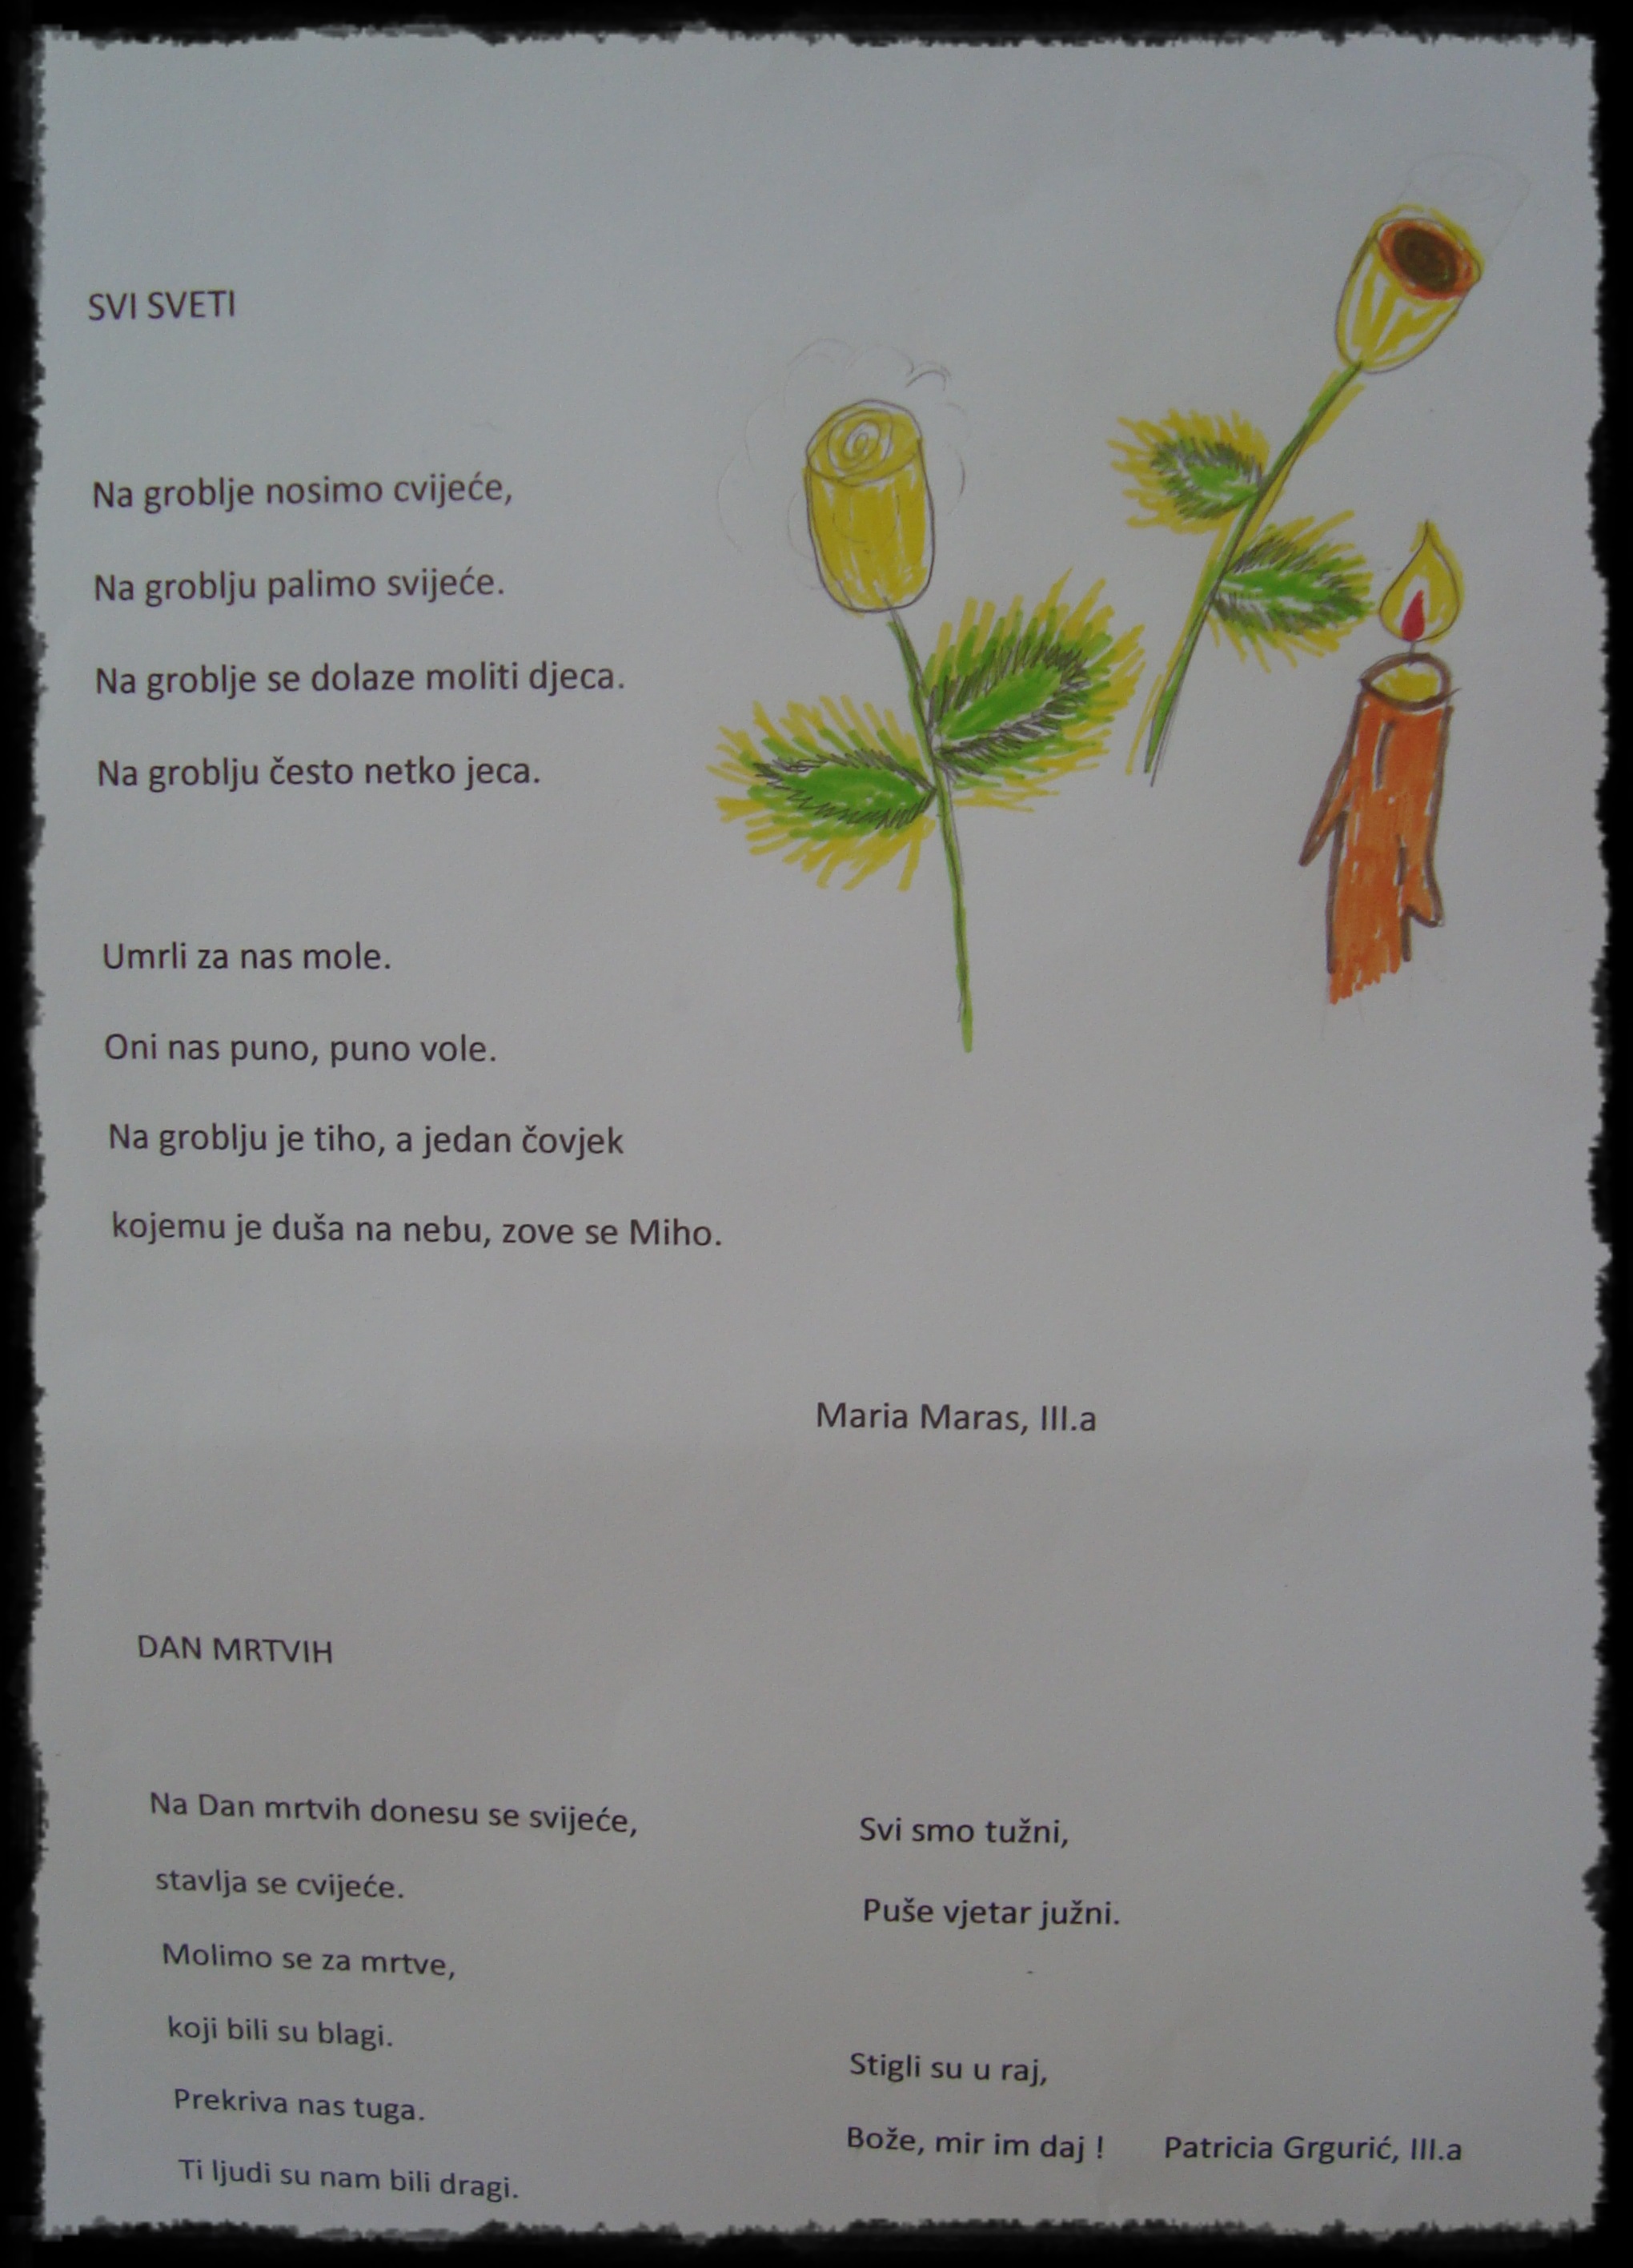 SVI SVETI
Na groblje nosimo cvijeće,
Na groblju palimo svijeće.
Na groblje se dolaze moliti djeca.
Na groblju često netko jeca.
Umrli za nas mole.
Oni nas puno, puno vole.
Na groblju je tiho, a jedan čovjek
kojemu je duša na nebu, zove se Miho.
Maria Maras, III.a
DAN MRTVIH
Na Dan mrtvih donesu se svijeće,
stavlja se cvijeće.
Molimo se za mrtve,
koji bili su blagi.
Prekriva nas tuga.
Ti ljudi su nam bili dragi.
Svi smo tužni,
Puše vjetar južni.
Stigli su u raj,
Bože, mir im daj !
Patricia Grgurić, III.a